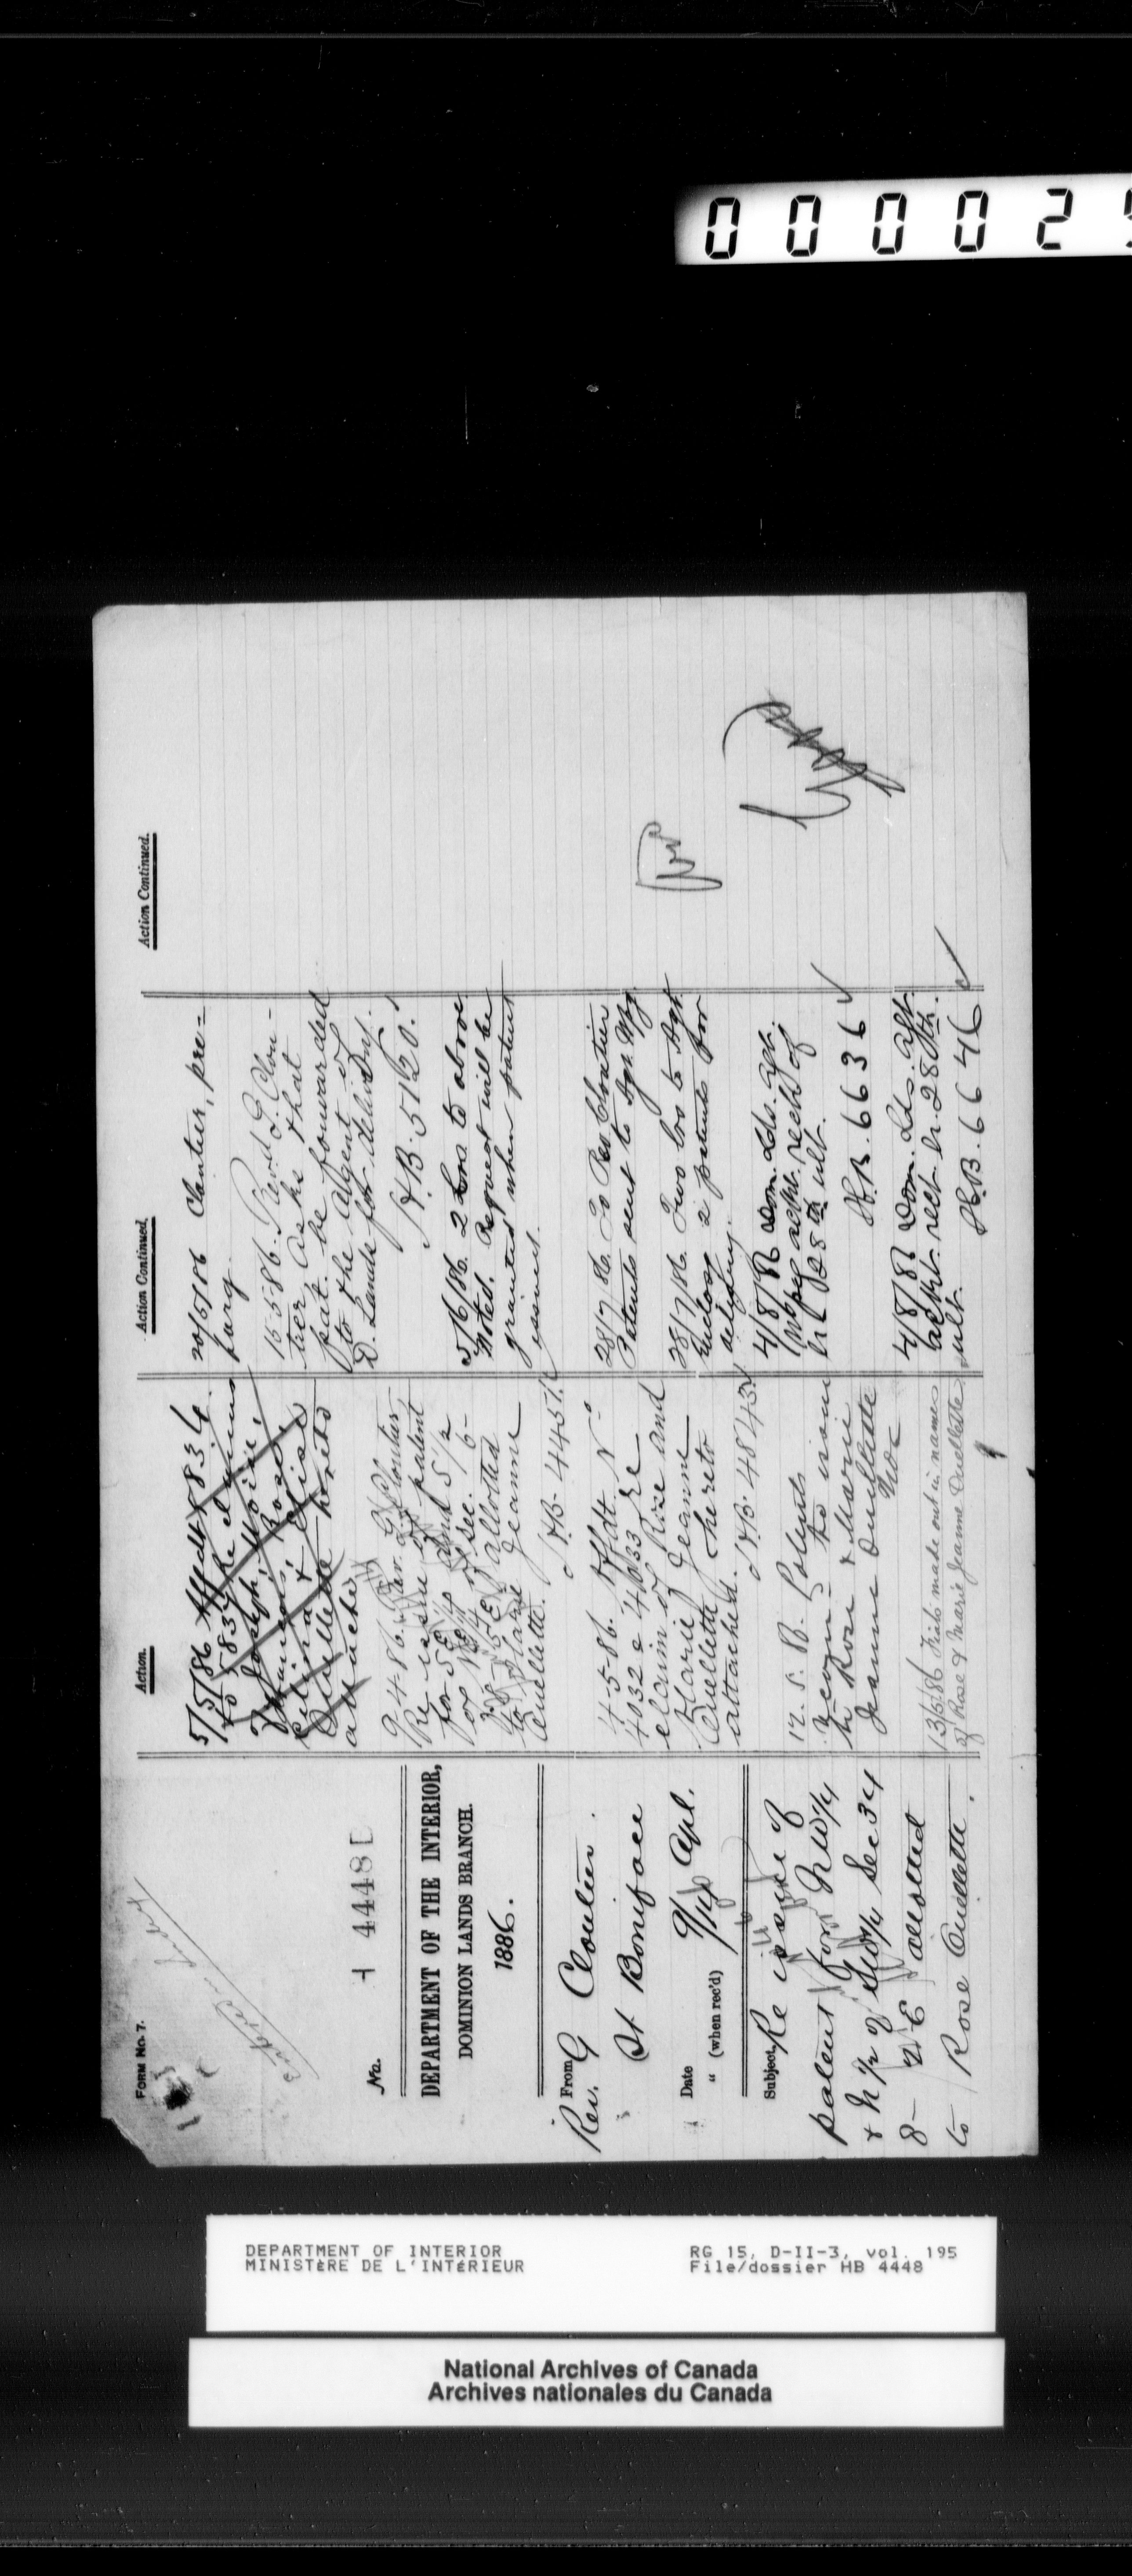 000025
FORM No. 7.
No.
H 4448
DEPARTMENT OF THE INTERIOR,
DOMINION LANDS BRANCH.
1886.
From
Rev. G Cloutier.
St Boniface
Date 9/ Apl.
" (when rec'd) 14/
Subject, Re issue of
patent for NW1/4
& N 1/2 of SW1/4 Sec 34
8- 2 E allotted
to Rose Ouellette.
Action.
5/5/86 Affdt 5834
to 5837 Re claims
of Joseph, Moise,
Francois, Rosa,
Celina & Elise
Ouellette hereto
attached
9-4-86. Rev. G. Cloutier
Re issue of patent
for SE1/4 and S 1/2
of NE1/4 of Sec. 16-
E allotted
to Marie Jeanne
Ouellette.
H.B. 4451.
4-5-86. Affdt. No
4032 & 4033 Re
claim of Rose and
Marie Jeanne
Ouellette hereto
attached.
H.B. 4843.
12.5.86. Patents
to issue
to Rose & Marie
Jeanne Ouellette
13/5/86 Fiats made out in names
of Rose & Marie Jeanne Ouellette
Action Continued.
20/5/86 Cloutier, pre=
parg
15-5-86. Revd. G. Clou-
tier, asks that
pat. be fourwarded
to the Agent of
D. Lands for delivery.
H.B. 5120.
5/6/86. 2 Lors to above
Noted. Request will be
granted when patent
issued.
28/7/86. To Rev Cloutier
Patents sent to Agt. Wpg.
28/7/86. Two lors to Agt
Enclosg 2 patents for
delivery.
4/8/86 Dom. Lds. Agt.
Wpeg ackn. recpt of
lr 28th ult.
H.B. 6636
4/8/86 Dom. Lds. Agt.
ackn. rect lr. 28th.
ult.
H.B. 6646
Action Continued.
DEPARTMENT OF INTERIOR
MINISTÈRE DE L'INTÉRIEUR
RG 15, D-II-3, vol. 195
File/dossier HB 4448
National Archives of Canada
Archives nationales du Canada